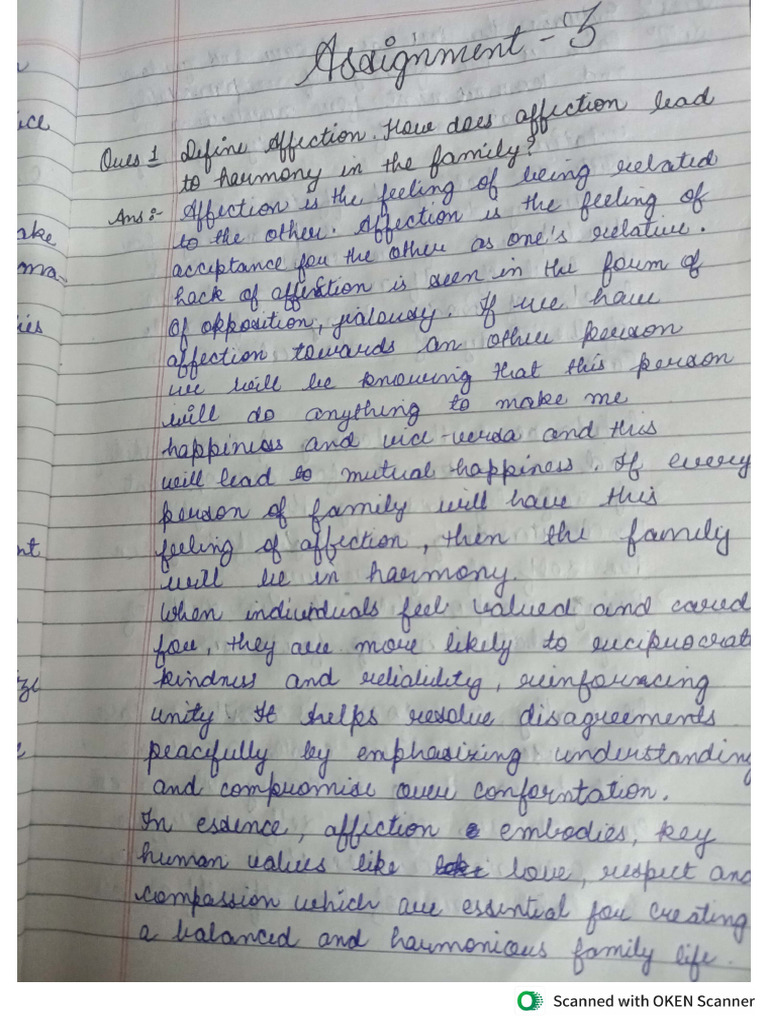 Assignment - 3
ice
Ques 1 Define Affection. How does affection lead
to harmony in the family?
Ans:- Affection is the feeling of being related
to the other. Affection is the feeling of
ake
acceptance for the other as one's relative.
ma-
Lack of affection is seen in the form of
of opposition, jealousy. If we have
ies
affection towards an other person
we will be knowing that this person
will do anything to make me
happiness and vice-versa and this
will lead to mutual happiness. If every
person of family will have this
nt
feeling of affection, then the family
will be in harmony.
When individuals feel valued and cared
for, they are more likely to reciprocat
kindness and reliability, reinforcing
ze
unity. It helps resolve disagreements
peacefully by emphasizing understanding
and compromise over conforntation.
In essence, affection embodies, key
human values like love, respect and
compassion which are essential for creating
a balanced and harmonious family life.
Scanned with OKEN Scanner